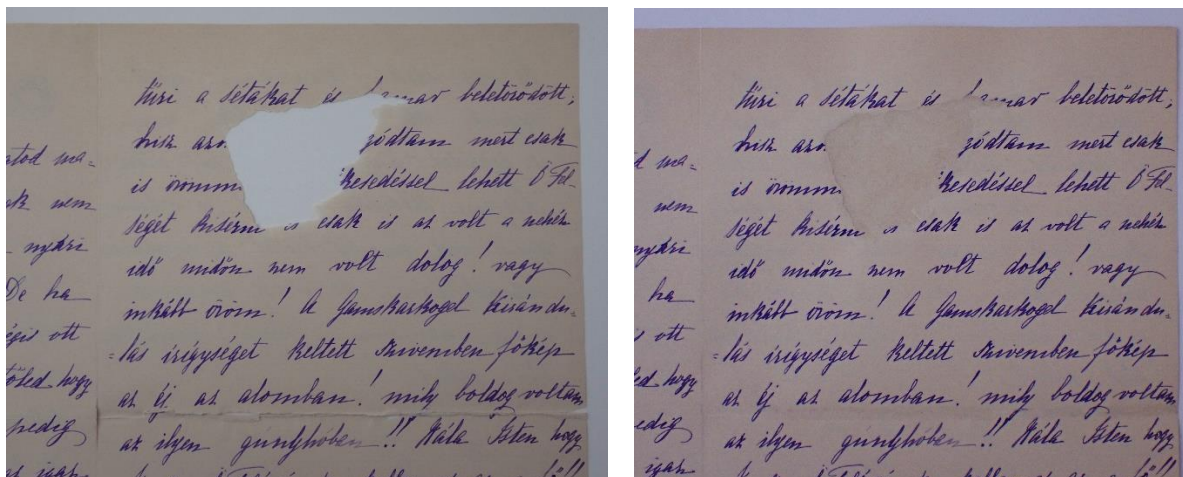 ma=
nem
nyári
De ha
ott
tőled hogy
pedig
tűri a sétákat és beletörődött,
hisz azo zódtam mert csak
is öröm kesedéssel lehett Ő Fel-
ségét kisérni s csak is az volt a nehéz
idő midőn nem volt dolog! vagy
inkább öröm! A Gamskarkogel kirándu-
=lás irigységet keltett szivemben főkép
az éj az alomban! mily boldog voltam
az ilyen gunyhóban!! Hála Isten hogy
ma=
nem
nyári
ha
ott
hogy
tűri a sétákat és beletörődött,
hisz azo zódtam mert csak
is öröm kesedéssel lehett Ő Fel-
ségét kisérni s csak is az volt a nehéz
idő midőn nem volt dolog! vagy
inkább öröm! A Gamskarkogel kirándu-
=lás irigységet keltett szivemben főkép
az éj az alomban! mily boldog voltam
az ilyen gunyhóban!! Hála Isten hogy